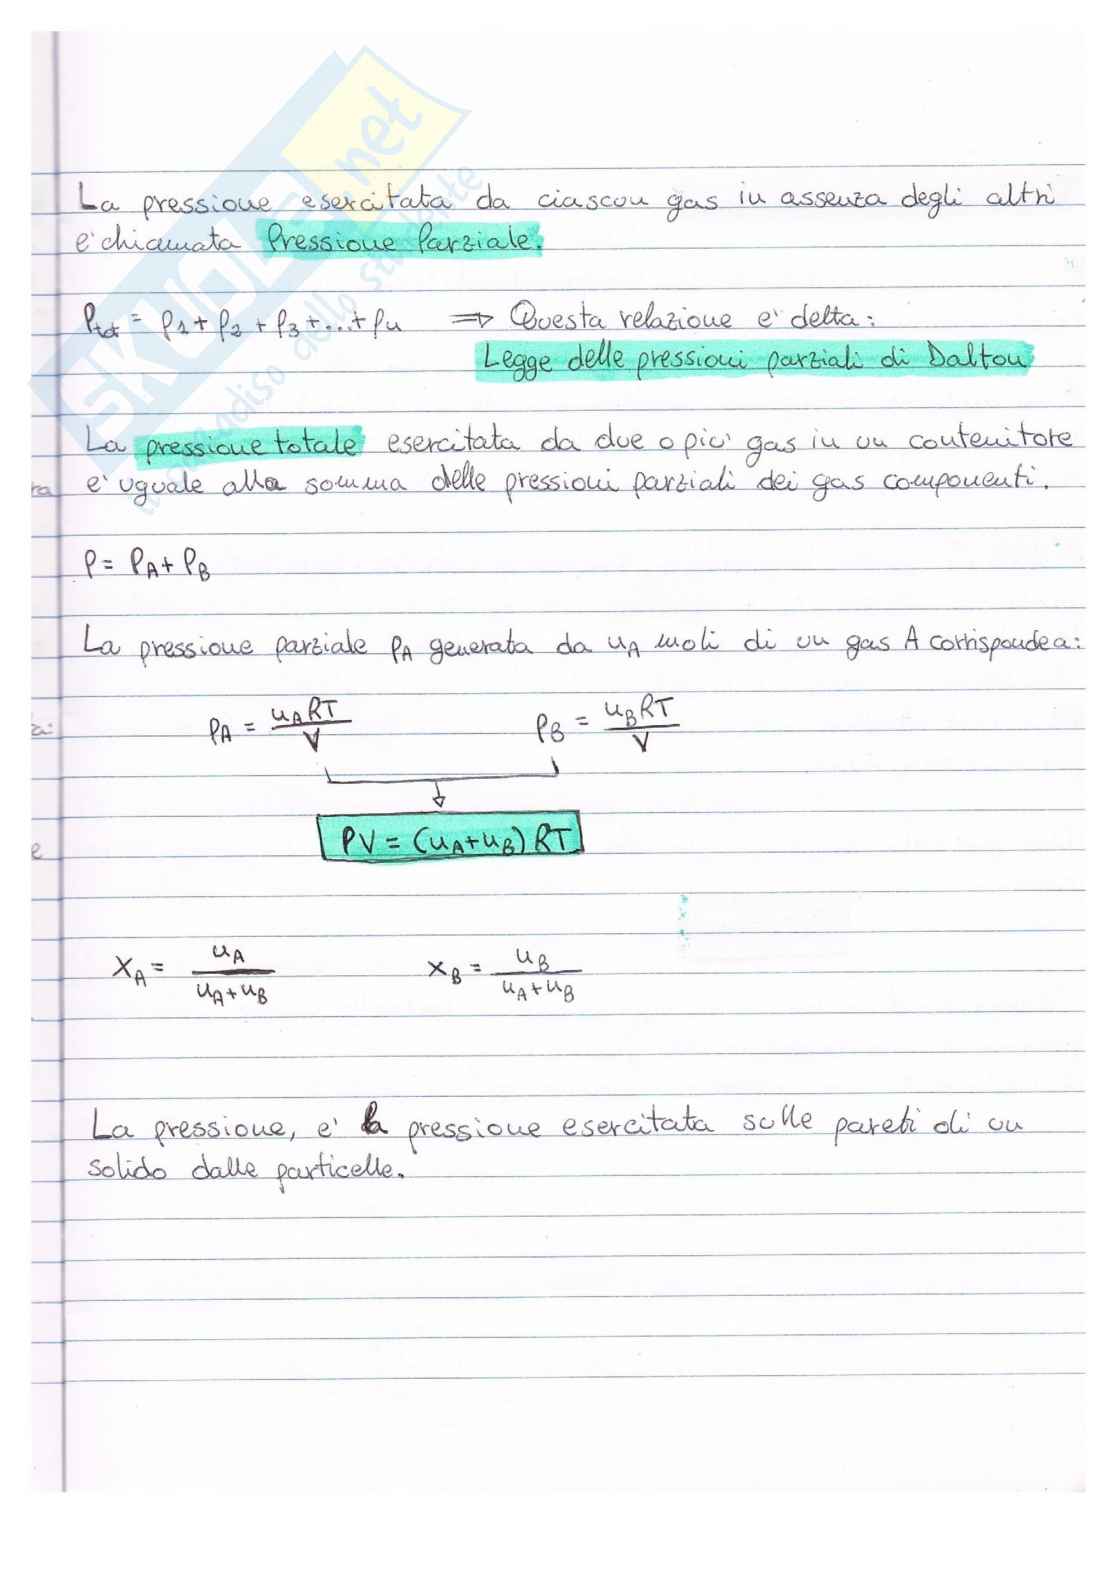 La pressione esercitata da ciascun gas in assenza degli altri
e' chiamata Pressione Parziale.
Ptot = P1 + P2 + P3 + ... + Pn ⇒ Questa relazione e' detta:
Legge delle pressioni parziali di Dalton
La pressione totale esercitata da due o piu' gas in un contenitore
ra
e' uguale alla somma delle pressioni parziali dei gas componenti.
P = PA + PB
La pressione parziale PA generata da nA moli di un gas A corrisponde a:
a:
PA = nA RT / V PB = nB RT / V
PV = (nA + nB) RT
e
XA = nA / nA + nB XB = nB / nA + nB
La pressione, e' la pressione esercitata sulle pareti di un
solido dalle particelle.
SKUOLA.net
dello studente